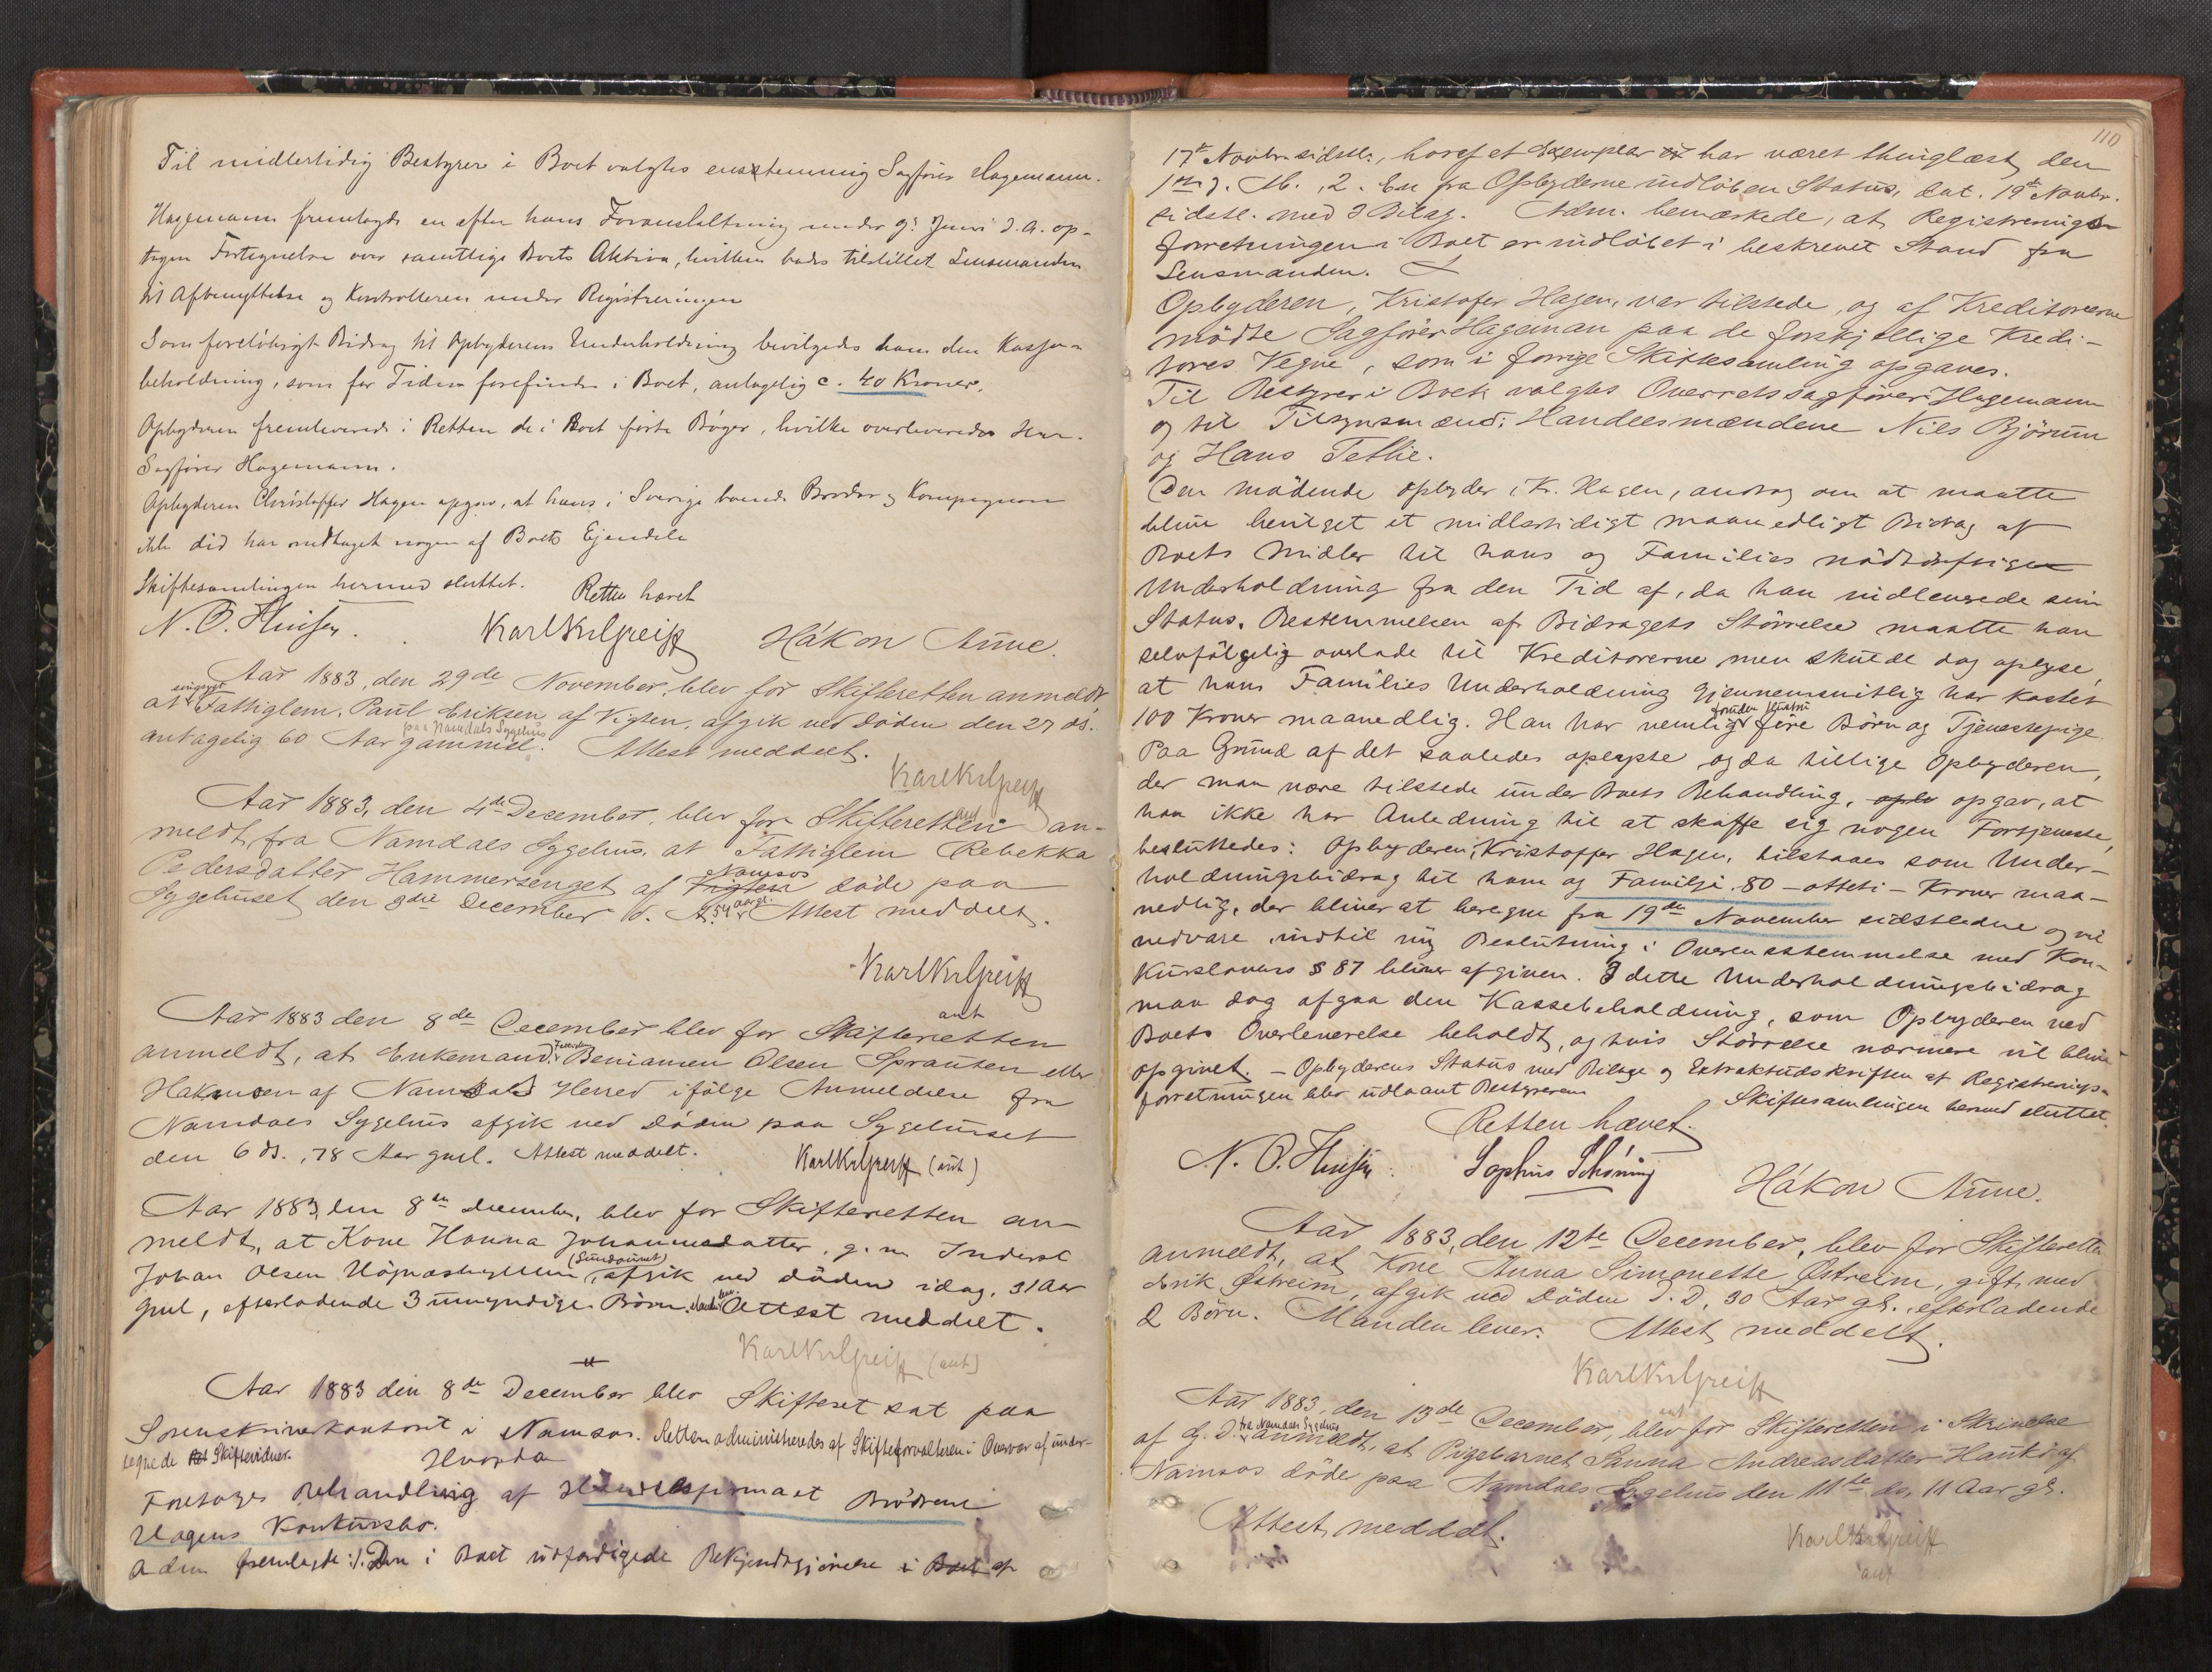 Til midlertidig Bestyrer i Boet valgtes enstemmig Sagfører Hagemann.
Hagemann fremlagde en efter hans Foranstaltning under 9. Juni d. A. op-
tagen Fortegnelse over samtlige Boets Aktiva, hvilken bades tilstillet Lensmanden
til Afbenyttelse og Kontrolleren under Registreringen
Som foreløbigt Bidrag til Opbyderens Underholdning bevilgedes ham den Kasse-
beholdning, som for Tiden forefindes i Boet, antagelig c. 40 Kroner.
Opbyderen fremleverede i Retten de i Boet førte Bøger, hvilke overleveredes Hr.
Sagfører Hagemann.
Opbyderen Christoffer Hagen opgav, at hans i Sverige boende Broder og Kompagnon
ikke did har modtaget nogen af Boets Ejendele
Skiftesamlingen hermed sluttet. Retten hævet
N. O. Karl Kr Greiff Håkon Aune.
Aar 1883, den 29de November, blev for Skifteretten anmeldt
at Fattiglem, Paul Eriksen af Vigten, afgik ved Døden den 27 ds.
paa Namdals Sygehus
antagelig 60 Aar gammel. Attest meddelt.
Karl Kr Greiff
Aar 1883, den 4de December, blev for Skifteretten an-
meldt fra Namdals Sygehus, at Fattiglem Rebekka
Pedersdatter Hammersenget af Vigten Namsos døde paa
Sygehuset den 3die December d. A. 54 aargl. Attest meddelt.
Karl Kr Greiff
ant
Aar 1883 den 8de December blev for Skifteretten
anmeldt, at Enkemand, Beniamen Olsen Sprauten eller
Hakmoen af Namdals Herred ifølge Anmeldelse fra
Namdals Sygehus afgik ved Døden paa Sygehuset
den 6 ds., 78 Aar gml. Attest meddelt. Karl Kr Greiff (ant)
Aar 1883, den 8de December, blev for Skifteretten an-
meldt, at Kone Hanna Johannesdatter, g. m. Inderst
(Sundaunet)
Johan Olsen, afgik ved Døden idag, 31 Aar
gml, efterladende 3 umyndige Børn. Attest meddelt.
Karl Kr Greiff (ant)
Aar 1883 den 8de December blev Skifteret sat paa
Sorenskriverkontoret i Namsos. Retten administreredes af Skifteforvalteren i Overvær af under-
tegnede Skiftevidner. Hvorda
Foretoges Behandling af Handelsfirmaet Brødrene
Hagens Konkursbo.
Adm fremlagde: 1. Den i Boet udfærdigede Bekjendtgjørelse i Boet af
110
17de Novbr. sidstl., hvoraf et Exemplar har været thinglæst den
1ste d. M., 2. En fra Opbyderne indløben Status, dat. 19de Novbr.
sidstl. med 3 Bilag. Adm. bemærkede, at Registrerings-
forretningen i Boet er indløbet i beskrevet Stand fra
Lensmanden.
Opbyderen, Kristofer Hagen, var tilstede, og af Kreditorerne
mødte Sagfører Hageman paa de forskjellige Kredi-
tores Vegne, som i forrige Skiftesamling opgaves.
Til Bestyrer i Boet valgtes Overretssagfører Hagemann
og til Tilsynsmænd: Handelsmændene Nils Bjørum
og Hans Tetlie.
Den mødende Opbyder, Kr. Hagen, androg om at maatte
blive bevilget et midlertidigt maanedligt Bidrag af
Boets Midler til hans og Families nødtørftige
Underholdning fra den Tid af, da han indleverede sin
Status. Bestemmelsen af Bidragets Størrelse maatte han
selvfølgelig overlade til Kreditorerne men skulde dog oplyse,
at hans Families Underholdning gjennemsnitlig har kostet
100 Kroner maanedlig. Han har nemlig foruden Hustru fire Børn og Tjenestepige.
Paa Grund af det saaledes oplyste og da tillige Opbyderen,
der maa være tilstede under Boets Behandling, opgav, at
han ikke har Anledning til at skaffe sig nogen Fortjeneste,
besluttedes: Opbyderen, Kristoffer Hagen, tilstaaes som Under-
holdningsbidrag til ham og Familje 80 - otteti - Kroner maa-
nedlig, der bliver at beregne fra 19de November sidstledne og vil
vedvare indtil ny Beslutning i Overensstemmelse med Kon-
kurslovens § 87 bliver afgiven. I dette Underholdningsbidrag
maa dog afgaa den Kassebeholdning, som Opbyderen ved
Boets Overleverelse beholdt, og hvis Størrelse nærmere vil blive
opgivet. - Opbyderens Status med Bilage og Extraktudskriften af Registrerings-
forretningen blev udlaant Bestyreren Skiftesamlingen hermed sluttet.
Retten hævet.
N. O. Sophus Schøning Håkon Aune.
Aar 1883, den 12te December, blev for Skifteretten
anmeldt, at Kone Anna Simonette Østreim, gift med
Erik Østreim, afgik ved Døden d. D., 30 Aar gl., efterladende
2 Børn. Manden lever. Attest meddelt.
Karl Kr Greiff
Aar 1883, den 13de December, blev for Skifteretten i Skrivelse
af G. D. fra Namdals Sygehus anmeldt, at Pigebarnet Sanna Andreasdatter Hauki af
Namsos døde paa Namdals Sygehus den 11te ds, 11 Aar gl.
Attest meddelt.
Karl Kr Greiff
ant